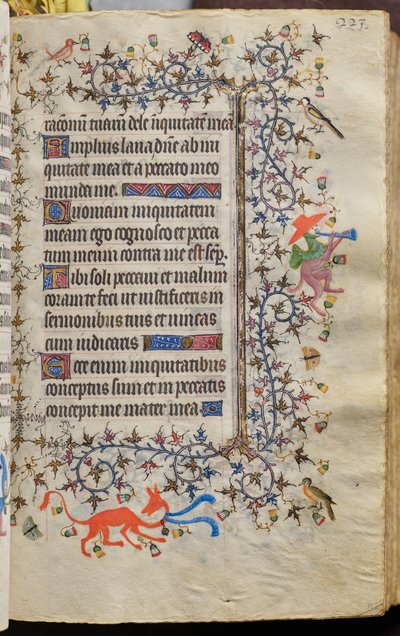 227.
tacionū tuarū dele īiquitatē mea
Amplius laua dn̄e ab ini
quitate mea et a peccato meo
munda me.
Quoniam iniquitatem
meam ego cognosco et pecca
tum meum contra me est sēp.
Tibi soli peccaui et malum
coram te feci ut iustificeris in
sermonibus tuis et uincas
cum iudicaris
Ecce enim iniquitatibus
conceptus sum et in peccatis
concepit me mater mea.